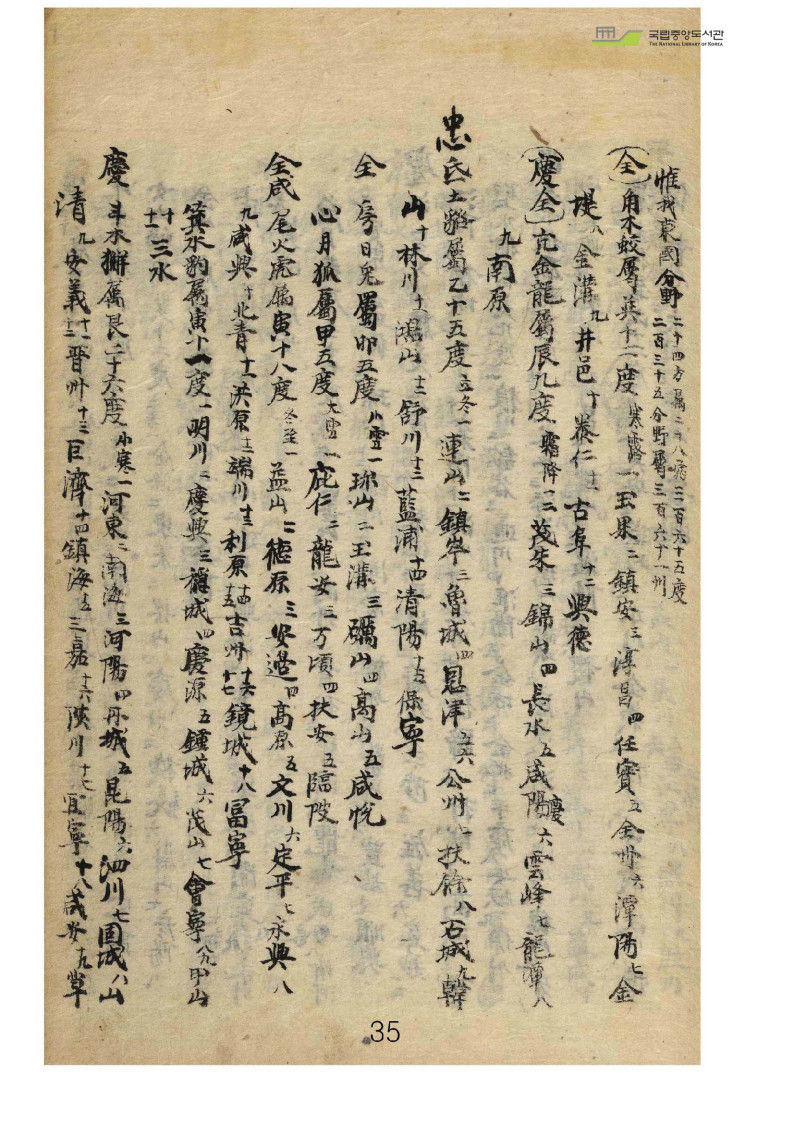 국립중앙도서관
THE NATIONAL LIBRARY OF KOREA
惟我東國分野 二十四方屬二十八宿三百六十五度
二百三十五分野屬三百六十一州
全 角木蛟屬巽十二度 寒露 一玉果 二鎭安 三淳昌 四任實 五全州 六潭陽 七金
堤 八金溝 九井邑 十泰仁 十一古阜 十二興德
慶全 亢金龍屬辰九度 霜降 一二茂朱 三錦山 四長水 五咸陽慶 六雲峰 七龍潭 八
九南原
忠 氐土貉屬乙十五度 立冬一連山 二鎭岑 三魯城 四恩津 五六公州 七扶餘 八石城 九韓
山 十林川 十一鴻山 十二舒川 十三藍浦 十四淸陽 十五保寧
全 房日兔屬卯五度 小雪一珎山 二玉溝 三礪山 四高山 五咸悅
心月狐屬甲五度 大雪一庇仁 二龍安 三万頃 四扶安 五臨陂
全咸 尾火虎屬寅十八度 冬至一益山 二德原 三安邊 四高原 五文川 六定平 七永興 八
九咸興 十北靑 十一洪原 十二端川 十三利原 十四十五吉州 十六十七鏡城 十八冨寧
箕水豹屬寅十一度 一明川 二慶興 三穩城 四慶源 五鍾城 六茂山 七會寧 八九甲山
十十一三水
慶 斗木獬屬艮二十六度 小寒一河東 二南海 三河陽 四丹城 五昆陽 六泗川 七固城 八山
淸 九安義 十十一晋州 十二十三巨濟 十四鎭海 十五三嘉 十六陜川 十七宜寧 十八咸安 十九草
35